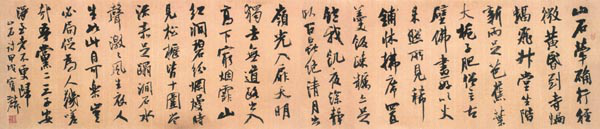 山石犖确行徑
微黃昏到寺蝙
蝠飛升堂坐階
新雨足芭蕉葉
大梔子肥僧言古
壁佛畫好以火
來照所見稀
鋪床拂席置
羹飯疏糲亦足
飽我飢夜深靜
臥百蟲絕清月出
嶺光入扉天明
獨去無道路出入
高下窮烟霏山
紅澗碧紛爛熳時
見松櫪皆十圍當
流赤足蹋澗石水
聲激激風生衣人
生如此自可樂豈
必局促為人鞿嗟
哉吾黨二三子安
得至老不更歸
山石詩甲戌寶麟